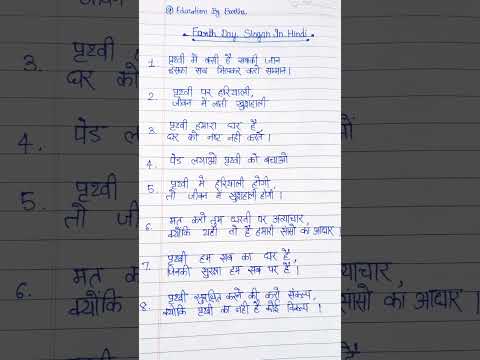 @ Education By Eartha.
Earth Day Slogan In Hindi
1. पृथ्वी में बसी है सबकी जान
इसका सब मिलकर करो सम्मान।
2. पृथ्वी पर हरियाली,
जीवन में लाती खुशहाली
3. पृथ्वी हमारा घर है,
घर को नष्ट नहीं करते।
4. पेड़ लगाओ पृथ्वी को बचाओ
5. पृथ्वी में हरियाली होगी,
तो जीवन में खुशहाली होगी।
6. मत करो तुम धरती पर अत्याचार,
क्योंकि यही तो है हमारी सांसों का आधार।
7. पृथ्वी हम सब का घर है,
जिसकी सुरक्षा हम सब पर है।
8. पृथ्वी सुरक्षित करने की करो संकल्प,
क्योंकि पृथ्वी का नहीं है कोई विकल्प।